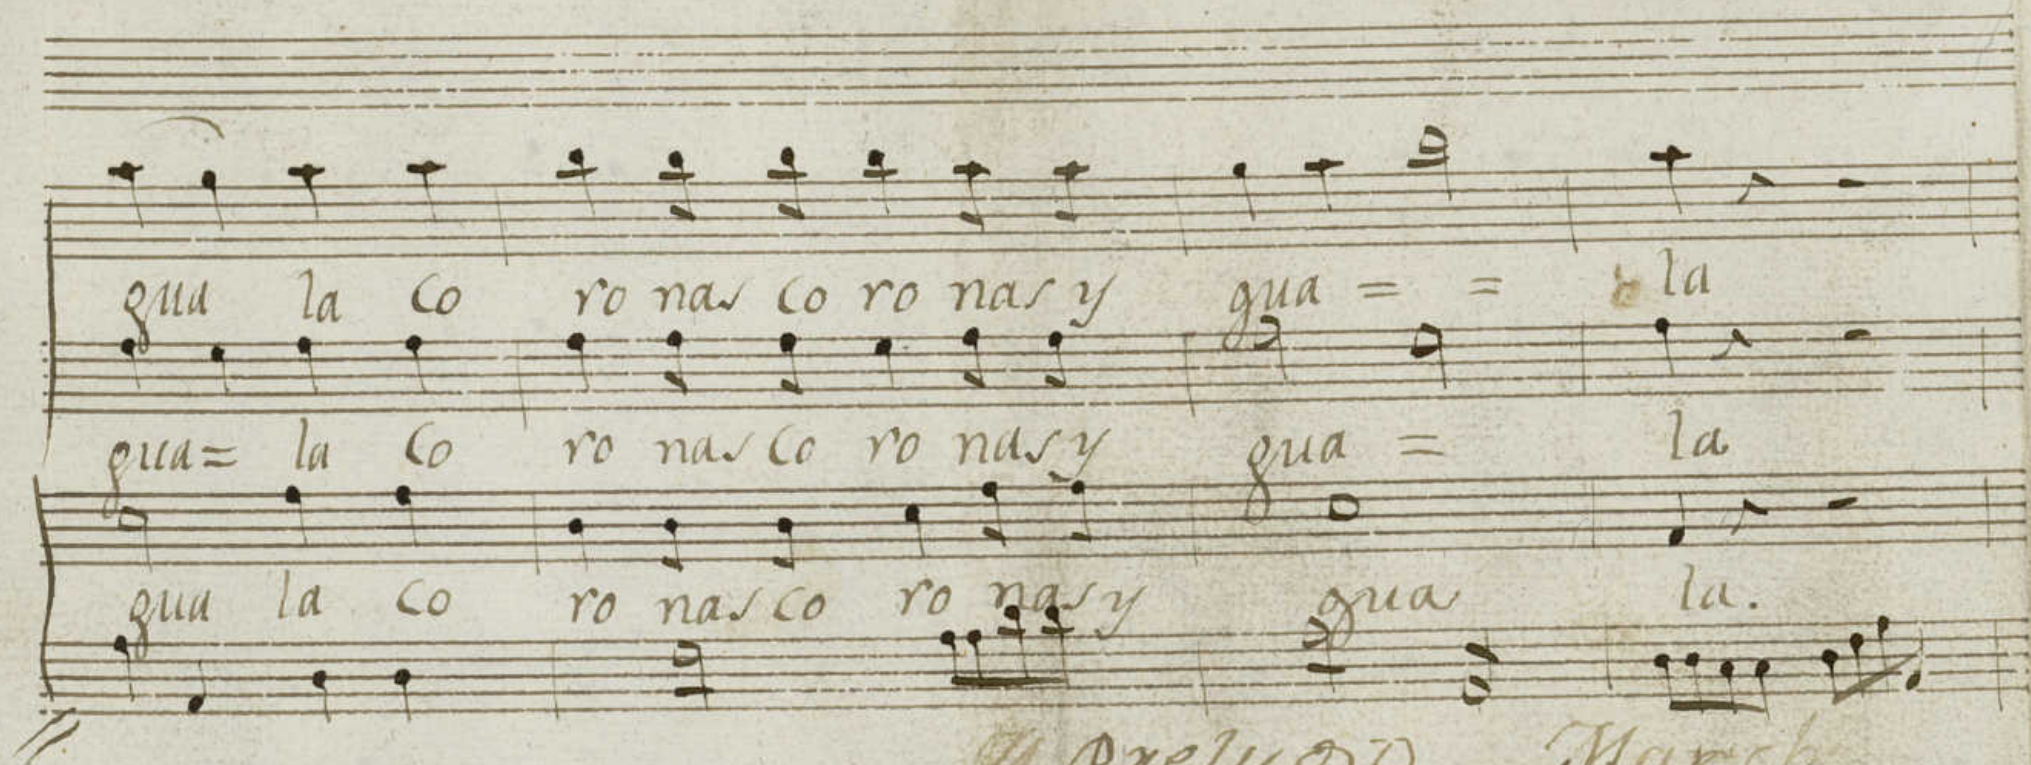 gua la co ro nas co ro nas y gua = = la
gua = la co ro nas co ro nas y gua = la
gua la co ro nas co ro nas y gua la.